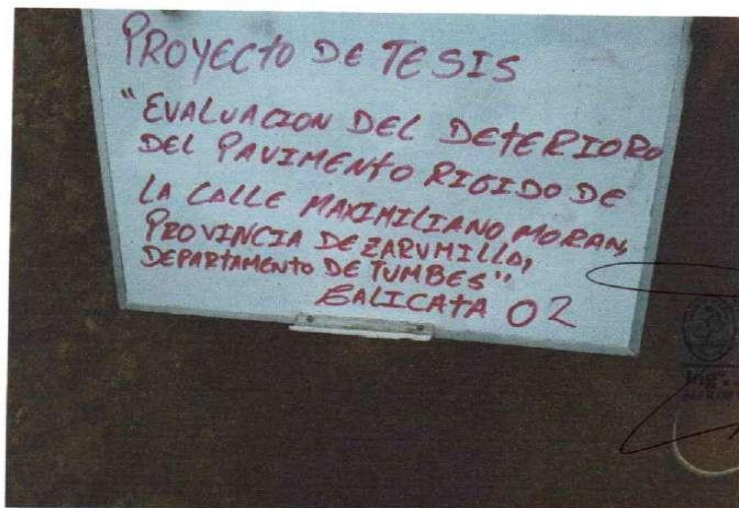 PROYECTO DE TESIS
"EVALUACION DEL DETERIORO
DEL PAVIMENTO RIGIDO DE
LA CALLE MAXIMILIANO MORAN,
PROVINCIA DE ZARUMILLA,
DEPARTAMENTO DE TUMBES"
CALICATA 02
Ing°